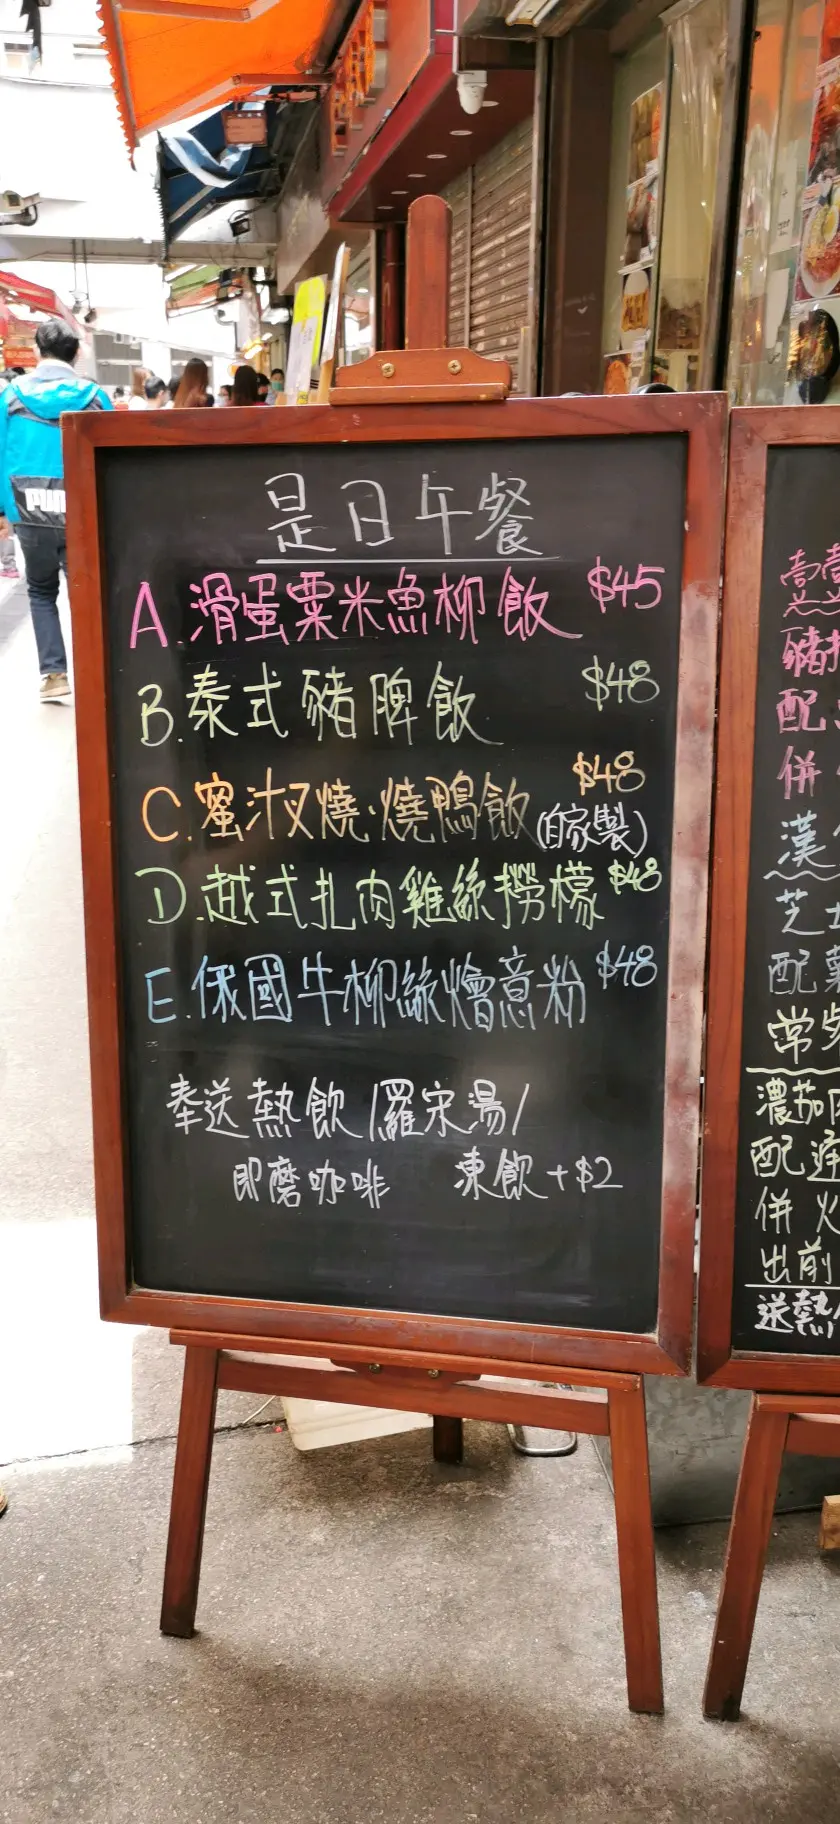 是日午餐
A.滑蛋粟米魚柳飯 $45
B.泰式豬脾飯 $48
C.蜜汁叉燒·燒鴨飯 $48
(自家製)
D.越式扎肉雞絲撈檬 $48
E.俄國牛柳絲燴意粉 $48
奉送熱飲/羅宋湯/
即磨咖啡 凍飲+$2
豬扒
配
併
漢
芝士
配薯
常
濃茄
配
併
出前
送熱